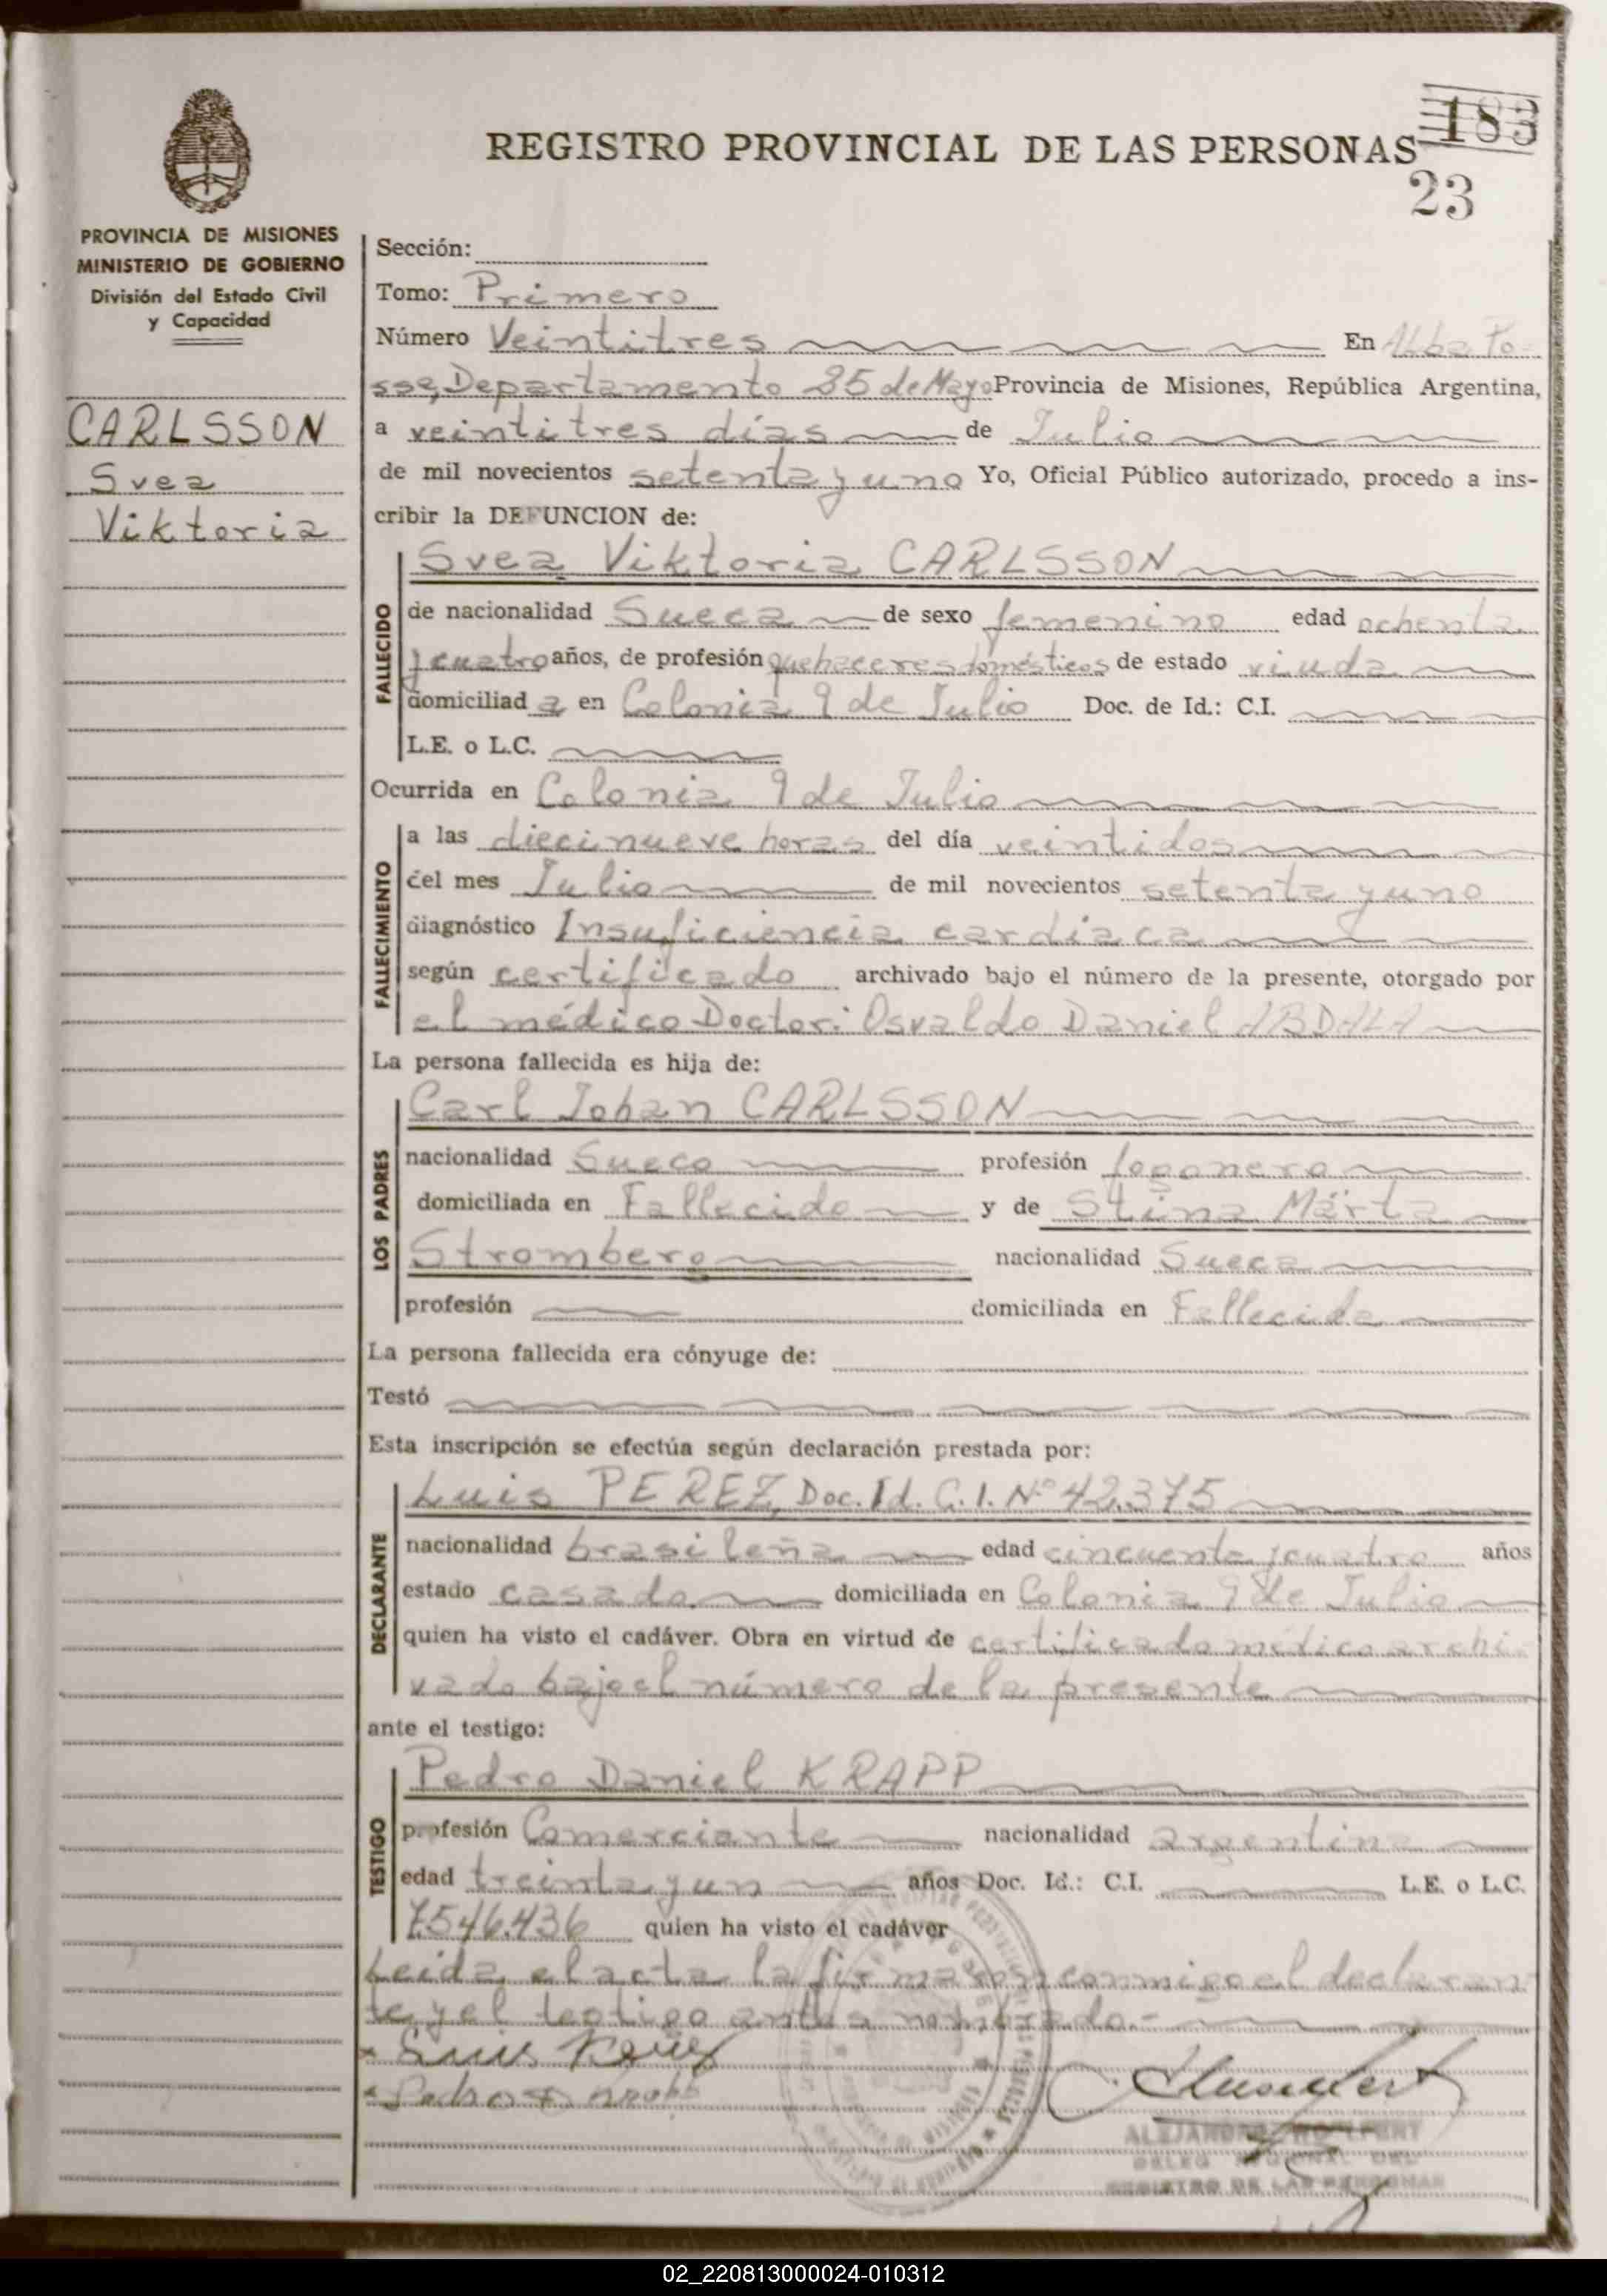 183
REGISTRO PROVINCIAL DE LAS PERSONAS
23
PROVINCIA DE MISIONES
MINISTERIO DE GOBIERNO
División del Estado Civil
y Capacidad
CARLSSON
Svea
Viktoria
Sección:
Tomo: Primero
Número Veintitres En Alba Po-
sse, Departamento 25 de Mayo Provincia de Misiones, República Argentina,
a veintitres días de Julio
de mil novecientos setenta y uno Yo, Oficial Público autorizado, procedo a ins-
cribir la DEFUNCION de:
Svea Viktoria CARLSSON
FALLECIDO
de nacionalidad Sueca de sexo femenino edad ochenta
y cuatro años, de profesión quehaceres domésticos de estado viuda
domiciliad a en Colonia 9 de Julio Doc. de Id.: C.I.
L.E. o L.C.
Ocurrida en Colonia 9 de Julio
FALLECIMIENTO
a las diecinueve horas del día veintidos
del mes Julio de mil novecientos setenta y uno
diagnóstico Insuficiencia cardiaca
según certificado archivado bajo el número de la presente, otorgado por
el médico Doctor: Osvaldo Daniel ABDALA
La persona fallecida es hija de:
Carl Johan CARLSSON
LOS PADRES
nacionalidad Sueco profesión fogonero
domiciliada en Fallecido y de Stina Märta
Stromberg nacionalidad Sueca
profesión domiciliada en Fallecida
La persona fallecida era cónyuge de:
Testó
Esta inscripción se efectúa según declaración prestada por:
Luis PEREZ, Doc. Id. C.I. Nº 42.375
DECLARANTE
nacionalidad brasileña edad cincuenta y cuatro años
estado casado domiciliada en Colonia 9 de Julio
quien ha visto el cadáver. Obra en virtud de certificado médico archi
vado bajo el número de la presente
ante el testigo:
Pedro Daniel KRAPP
TESTIGO
profesión Comerciante nacionalidad argentina
edad treinta y un años Doc. Id.: C.I. L.E. o L.C.
7.546.436 quien ha visto el cadáver
Leida el acta la firmaron conmigo el declaran
te y el testigo antes nombrado.-
Luis Perez
Pedro D Krapp
ALEJANDRO
DELEG REGIONAL DEL
REGISTRO DE LAS PERSONAS
02_220813000024-010312